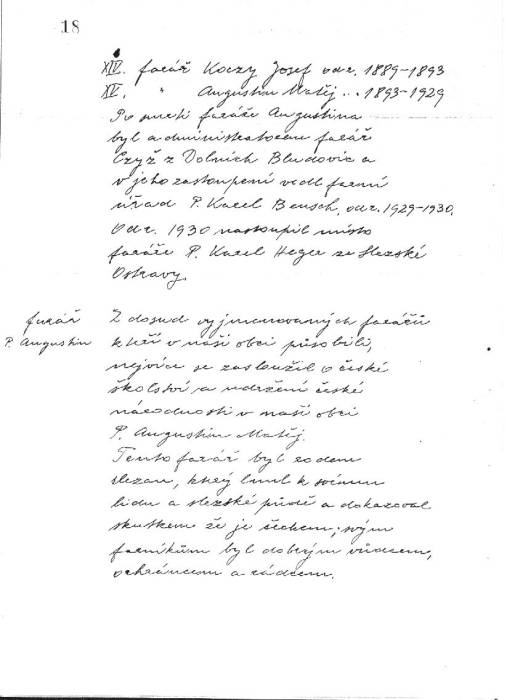 18
XIV. farář Koczy Josef od r. 1889-1893
XV. " Augustin Matěj .. 1893-1929
Po smrti faráře Augustina
byl administrátorem farář
Czyž z Dolních Bludovic a
v jeho zastoupení vedl farní
úřad P. Karel Beusch, od r. 1929-1930.
Od r. 1930 nastoupil místo
faráře P. Karel Heger ze Slezské
Ostravy.
farář
P. Augustin
Z dosud vyjmenovaných farářů
kteří v naší obci působili,
nejvíce se zasloužil o české
školství a udržení české
národnosti v naší obci
P. Augustin Matěj.
Tento farář byl rodem
slezan, který lnul k svému
lidu a slezské půdě a dokazoval
skutkem že je čechem; svým
farníkům byl dobrým vůdcem,
ochráncem a rádcem.